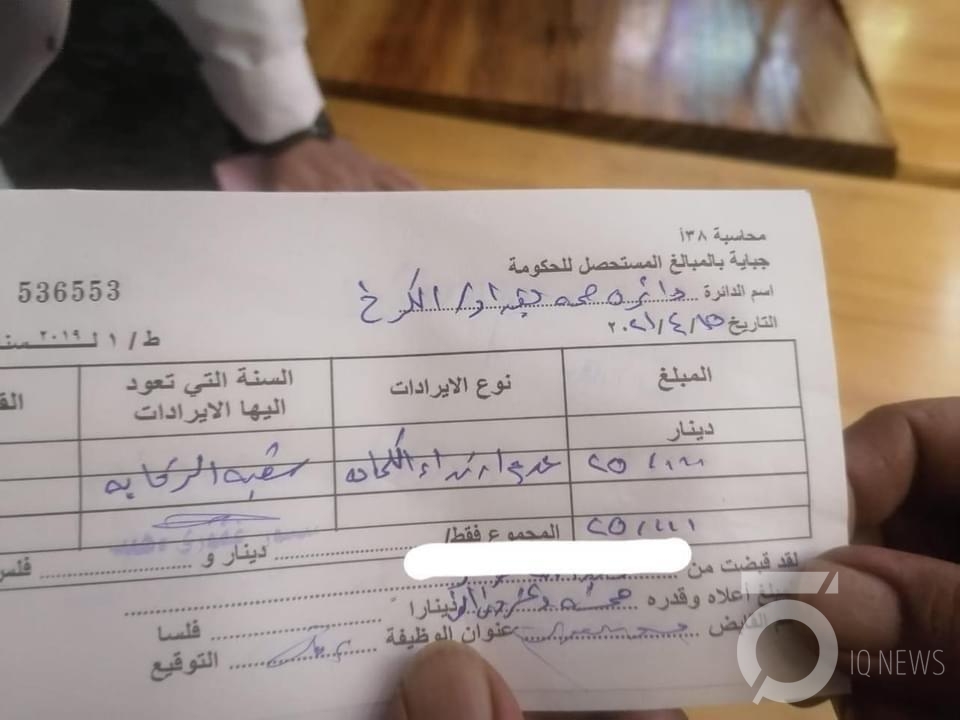 محاسبة ٣٨أ
جباية بالمبالغ المستحصل للحكومة
536553
اسم الدائرة دائرة صحة بغداد/ الكرخ
التاريخ ٢٠٢١/٤/١٥
ط/ ١ لـ ٢٠١٩
المبلغ نوع الايرادات السنة التي تعود اليها الايرادات
دينار
٢٥٠٠٠ عدم ارتداء الكمامة شعبة الرقابة
المجموع فقط/ ٢٥٠٠٠
دينار و فلس
لقد قبضت من
أعلاه وقدره خمسة وعشرون الف دينارا فلسا
القابض عنوان الوظيفة التوقيع
IQ NEWS